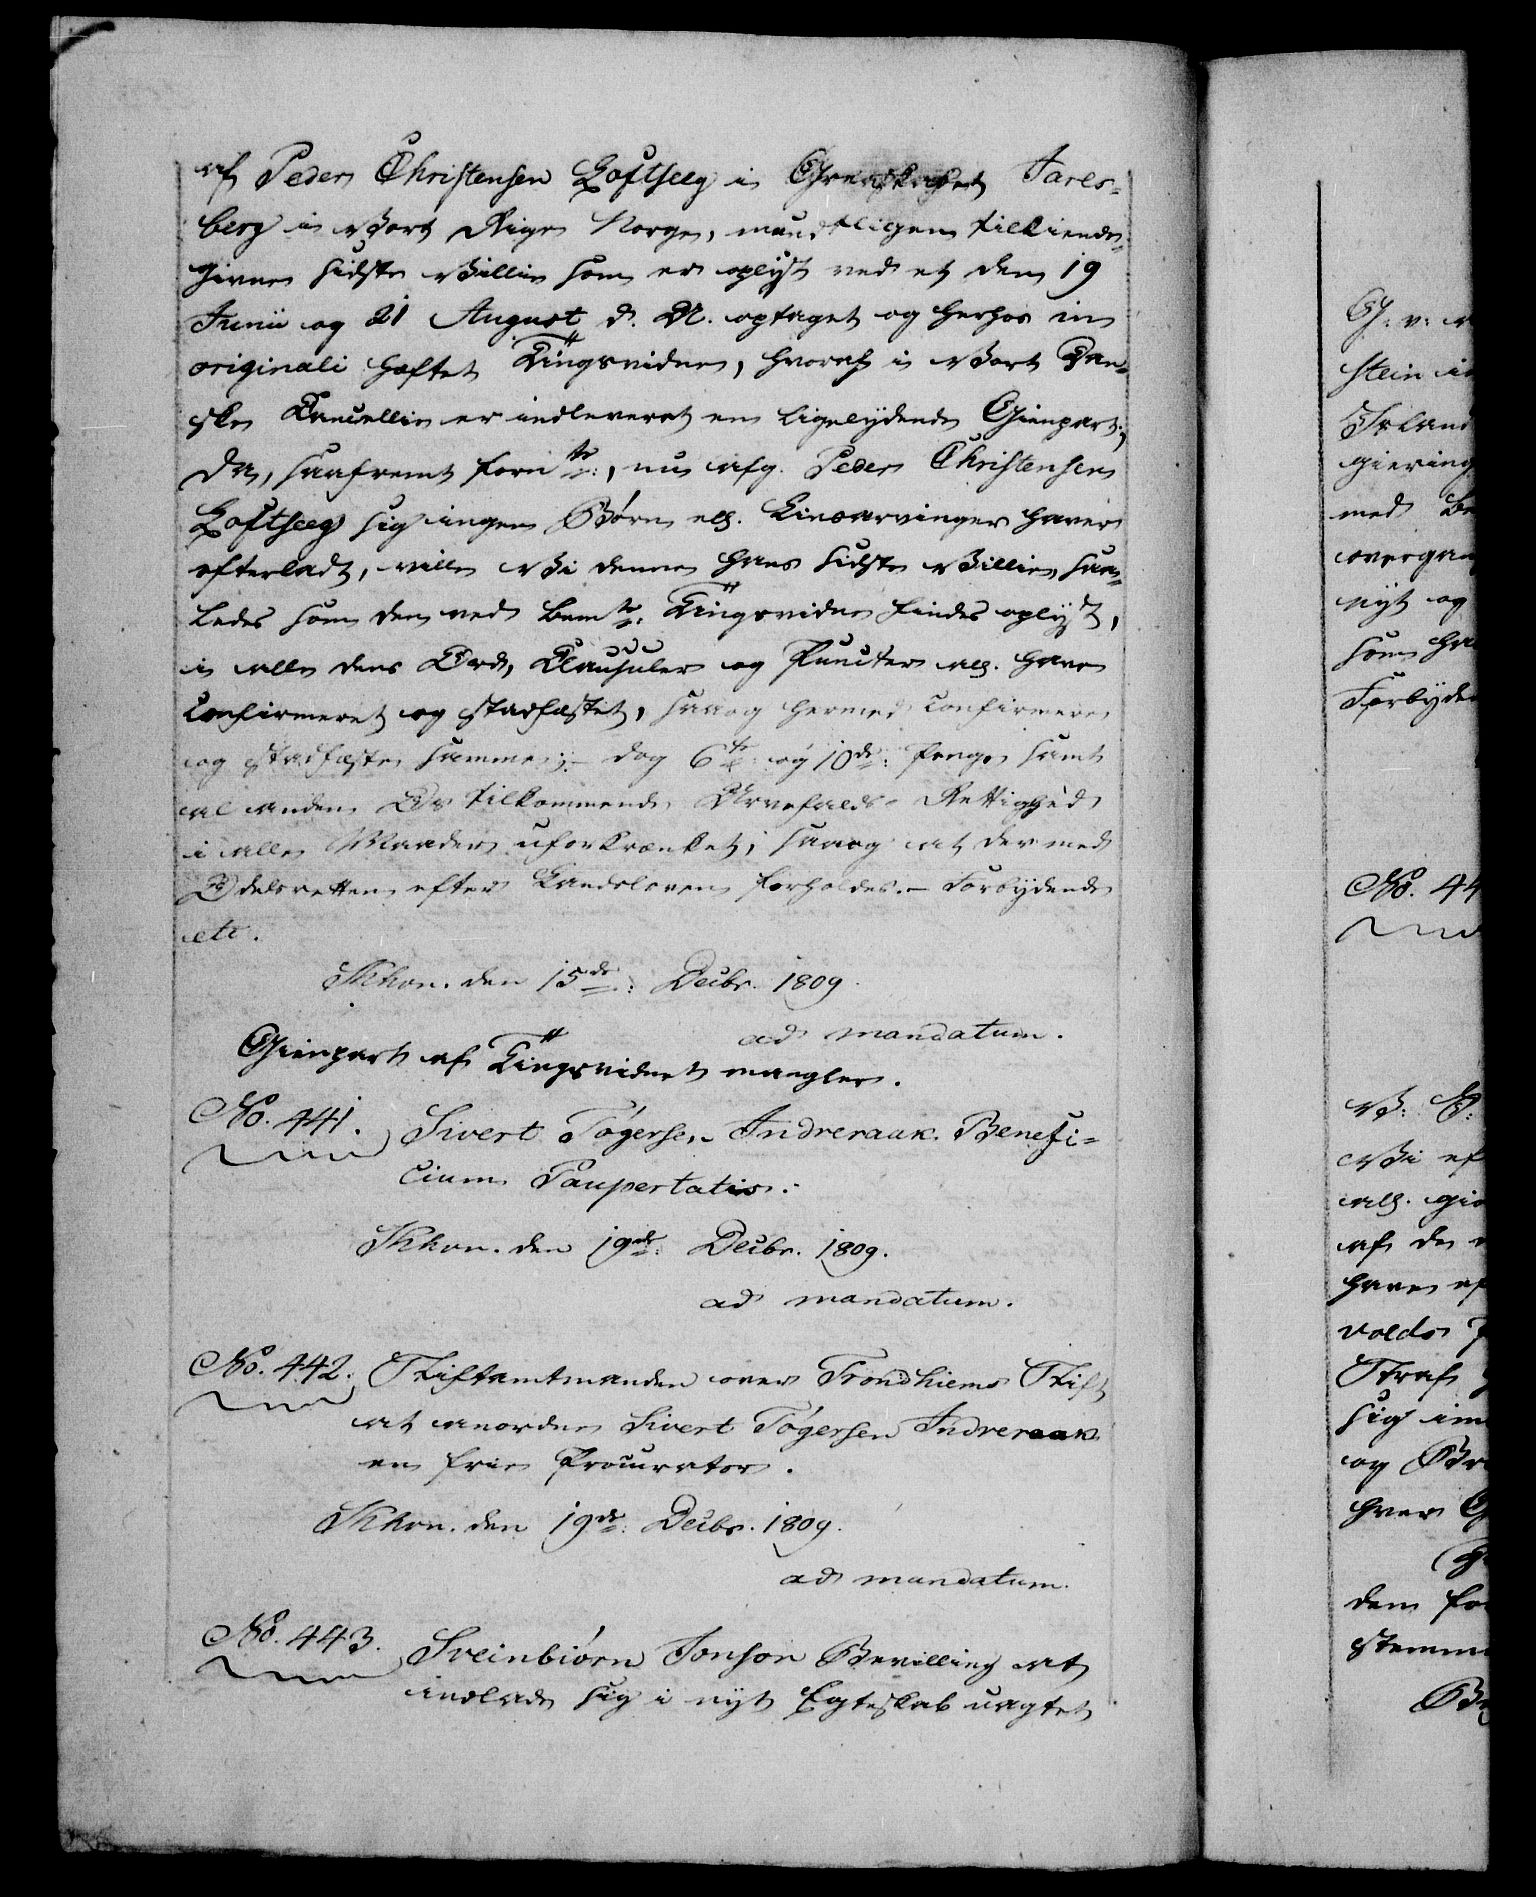 af Peder Christensen Loftseeg i Grevskabet Jarls-
berg i Vort Rige Norge, mundtligen tilkiende-
givne sidste Villie som er oplyst ved et den 19
Junii og 21 August d. A. optaget og herhos in
originali hæftet Tingsvidne, hvoraf i Vort Dan-
ske Cancellie er indleveret en ligelydende Gienpart,
da, saafremt forn.te:, nu afg. Peder Christensen
Loftseeg sig ingen Børn ell. Livsarvinger haver
efterladt, ville Vi denne hans sidste Villie, saa-
ledes som den ved bem.te: Tingsvidne findes oplyst,
i alle dens Ord, Clausuler og Puncter all. have
confirmeret og stadfæstet, saa og hermed confirmere
og stadfæste samme; - dog 6te og 10de: Penge samt
al anden Os tilkommende Arvefalds-Rettighed
i alle Maader uforkrænket; saa og at der med
Odelsretten efter Landsloven forholdes. - Forbydende
etc.
Kkon. den 15de: Decbr. 1809.
ad mandatum.
Gienpart af Tingsvidnet mangler.
No. 441. Sivert Tøgersen Indreraak. Benefi-
cium Paupertatis.
Kkon. den 19de: Decbr. 1809.
ad mandatum.
No. 442. Stiftamtmanden over Trondhiems Stift
at anordne Sivert Tøgersen Indreraak
en frie Procurator.
Kkon. den 19de: Decbr. 1809.
ad mandatum.
No. 443. Sveinbiørn Jonson Bevilling at
indlade sig i nyt Egteskab uagtet
G: v: 
stein i
Island
giering
med
overgaa
nyt og
som ha
Forbyden
No. 44
Vi
all. gi
af de
have
volds
Straf
sig
og
hver
dem
stemm